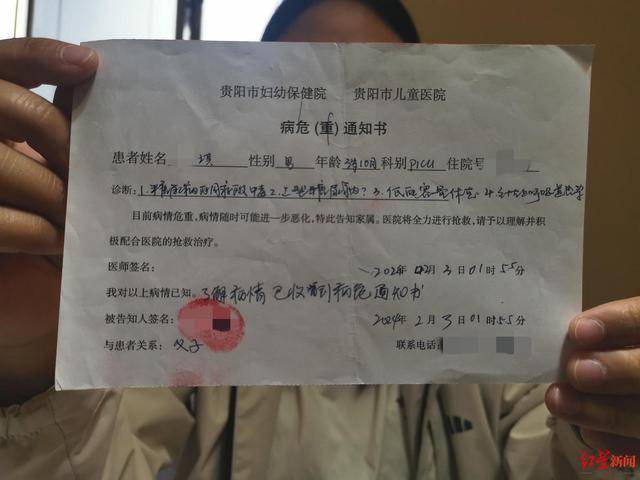 贵阳市妇幼保健院 贵阳市儿童医院
病危(重)通知书
患者姓名 琪 性别 男 年龄 3岁10月 科别 PICU 住院号
诊断: 1. 2. 3.低血容量休克 4.
目前病情危重,病情随时可能进一步恶化,特此告知家属。医院将全力进行抢救,请予以理解并积
极配合医院的抢救治疗。
医师签名: 2024年 02月 3日 01时 55分
我对以上病情已知。了解病情 已收到病危通知书
被告知人签名: 2024年 2月 3日 01时 55分
与患者关系: 父子 联系电话
红星新闻